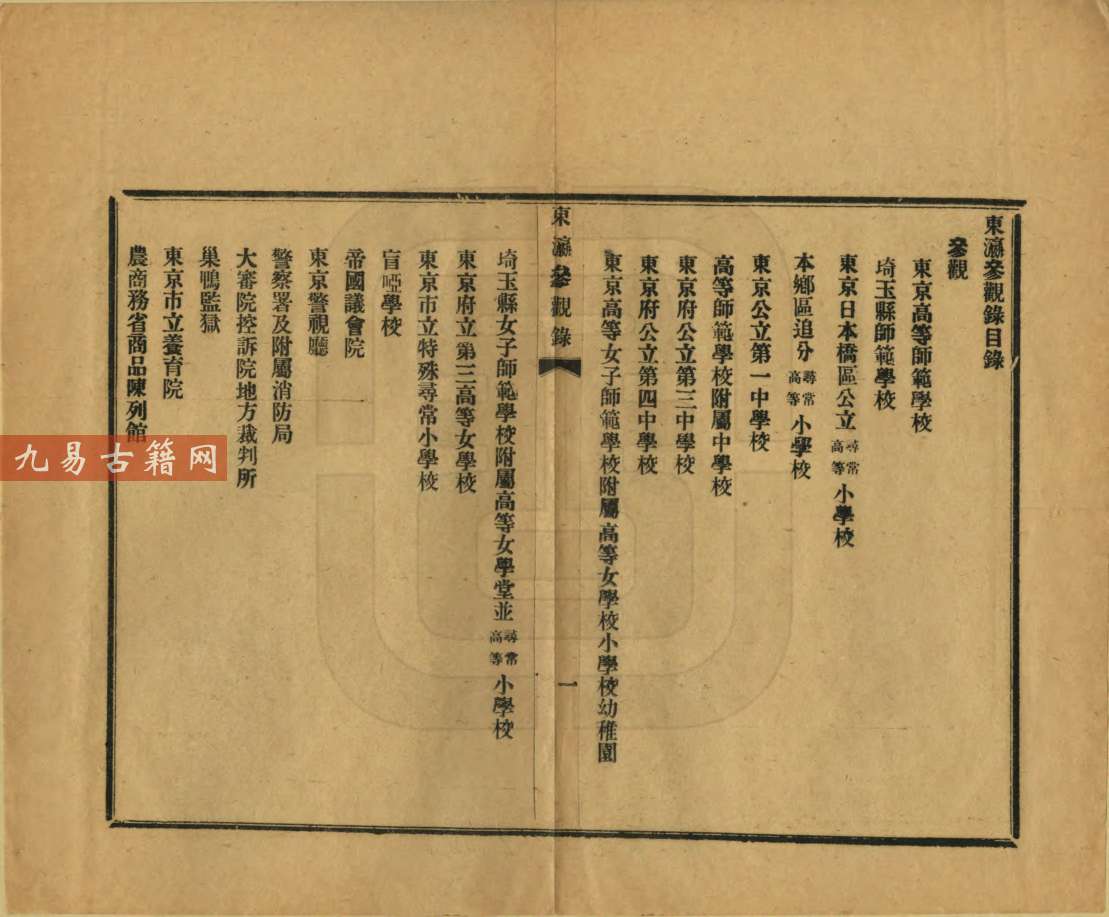 東瀛參觀錄目錄
參觀
東京高等師範學校
埼玉縣師範學校
東京日本橋區公立尋常高等小學校
本鄉區追分尋常高等小學校
東京公立第一中學校
高等師範學校附屬中學校
東京府公立第三中學校
東京府公立第四中學校
東京高等女子師範學校附屬高等女學校小學校幼稚園
東瀛參觀錄
一
埼玉縣女子師範學校附屬高等女學堂並尋常高等小學校
東京府立第三高等女學校
東京市立特殊尋常小學校
盲啞學校
帝國議會院
東京警視廳
警察署及附屬消防局
大審院控訴院地方裁判所
巢鴨監獄
東京市立養育院
農商務省商品陳列館
九易古籍网